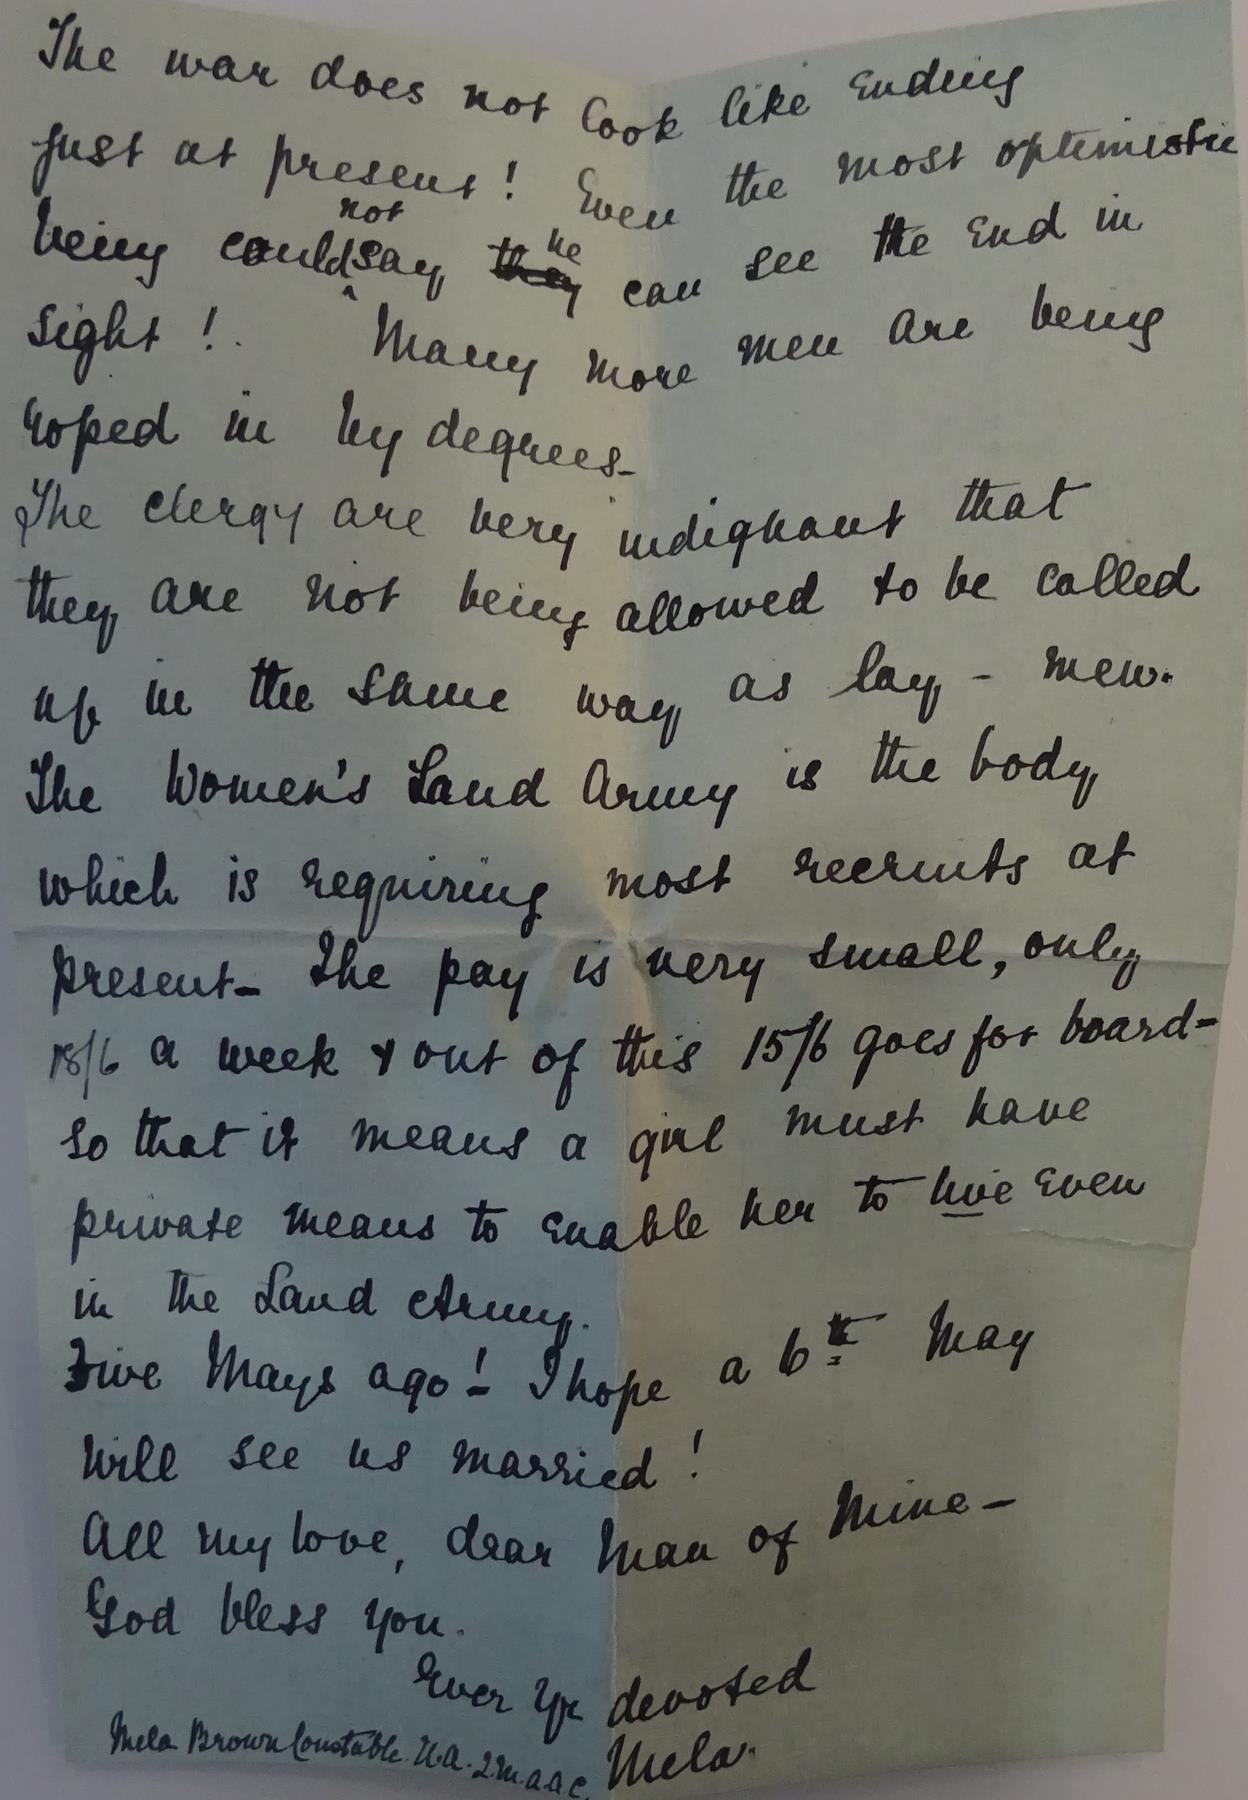 The war does not look like ending
just at present! Even the most optimistic
being could not say they he can see the end in
sight! Many more men are being
roped in by degrees-
The clergy are very indignant that
they are not being allowed to be called
up in the same way as lay-men.
The Women's Land Army is the body
which is requiring most recruits at
present- The pay is very small, only
18/6 a week & out of this 15/6 goes for board-
so that it means a girl must have
private means to enable her to live even
in the Land Army.
Five Mays ago! I hope a 6th May
will see us married!
All my love, dear Man of Mine-
God bless you.
Ever yr devoted
Mela.
Mela Brown Constable. Q.M.A.A.C.